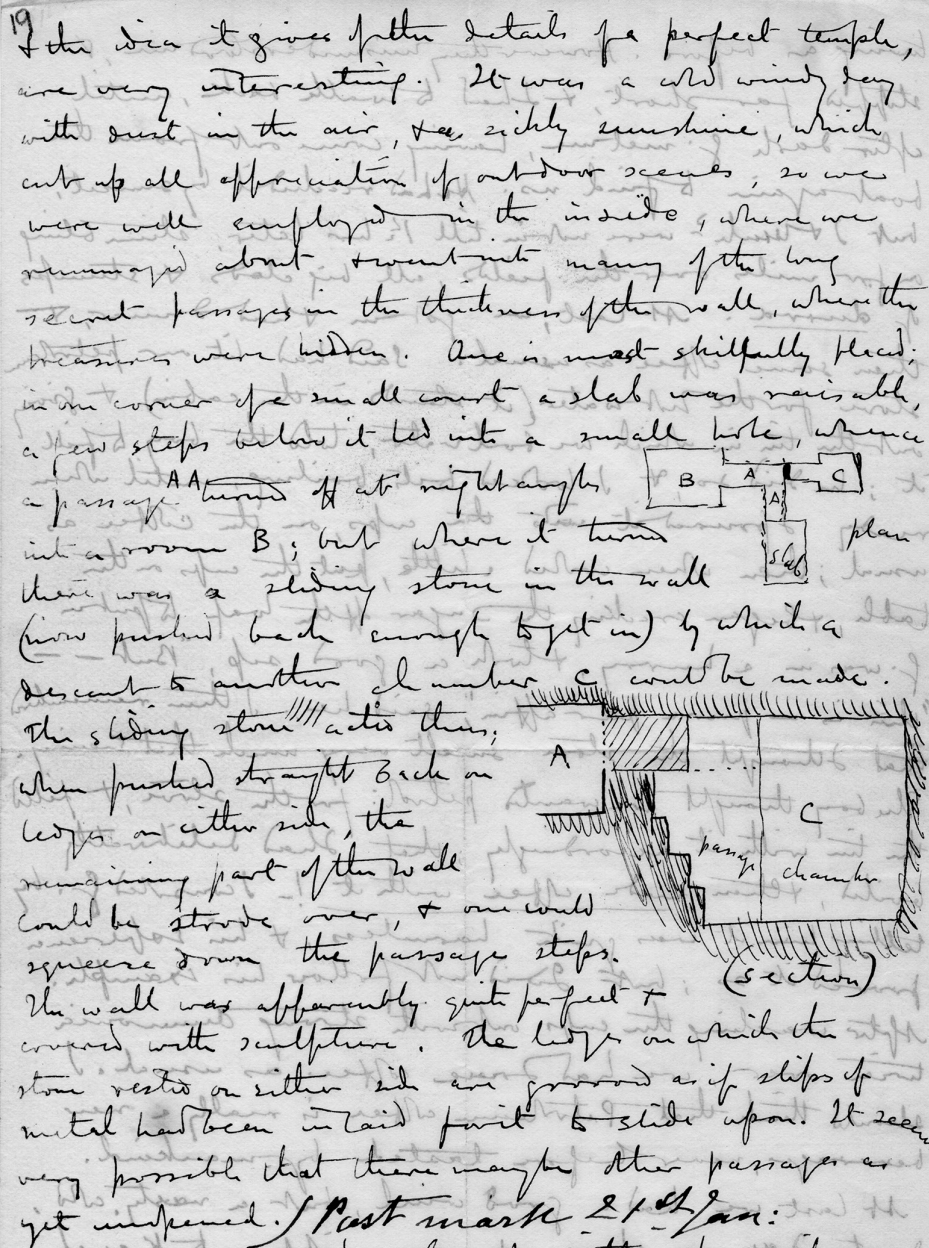 19
& the idea it gives of the details of a perfect temple,
are very interesting. It was a cold windy day
with dust in the air, & a sickly sunshine, which
cut up all appreciation of outdoor scenes, so we
were well employed in the inside, where we
rummaged about & went into many of the long
secret passages in the thickness of the wall, where the
treasures were hidden. One is most skilfully placed;
in one corner of a small court a slab was raisable,
a few steps below it led into a small hole, whence
a passage AA turned off at right angles
B A C
A
slab
plan
into a room B; but where it turned
there was a sliding stone in the wall
(now pushed back enough to get in) by which a
descent to another chamber C could be made.
The sliding stone acted thus;
when pushed straight back on
ledges on either side, the
remaining part of the wall
could be strode over, & one could
squeeze down the passage steps.
A
C
passage chamber
(section)
The wall was apparently quite perfect &
covered with sculpture. The ledges on which the
stone rested on either side are grooved as if slips of
metal had been inlaid for it to slide upon. It seems
very possible that there may be other passages as
yet unopened.) Post mark 21st Jan: